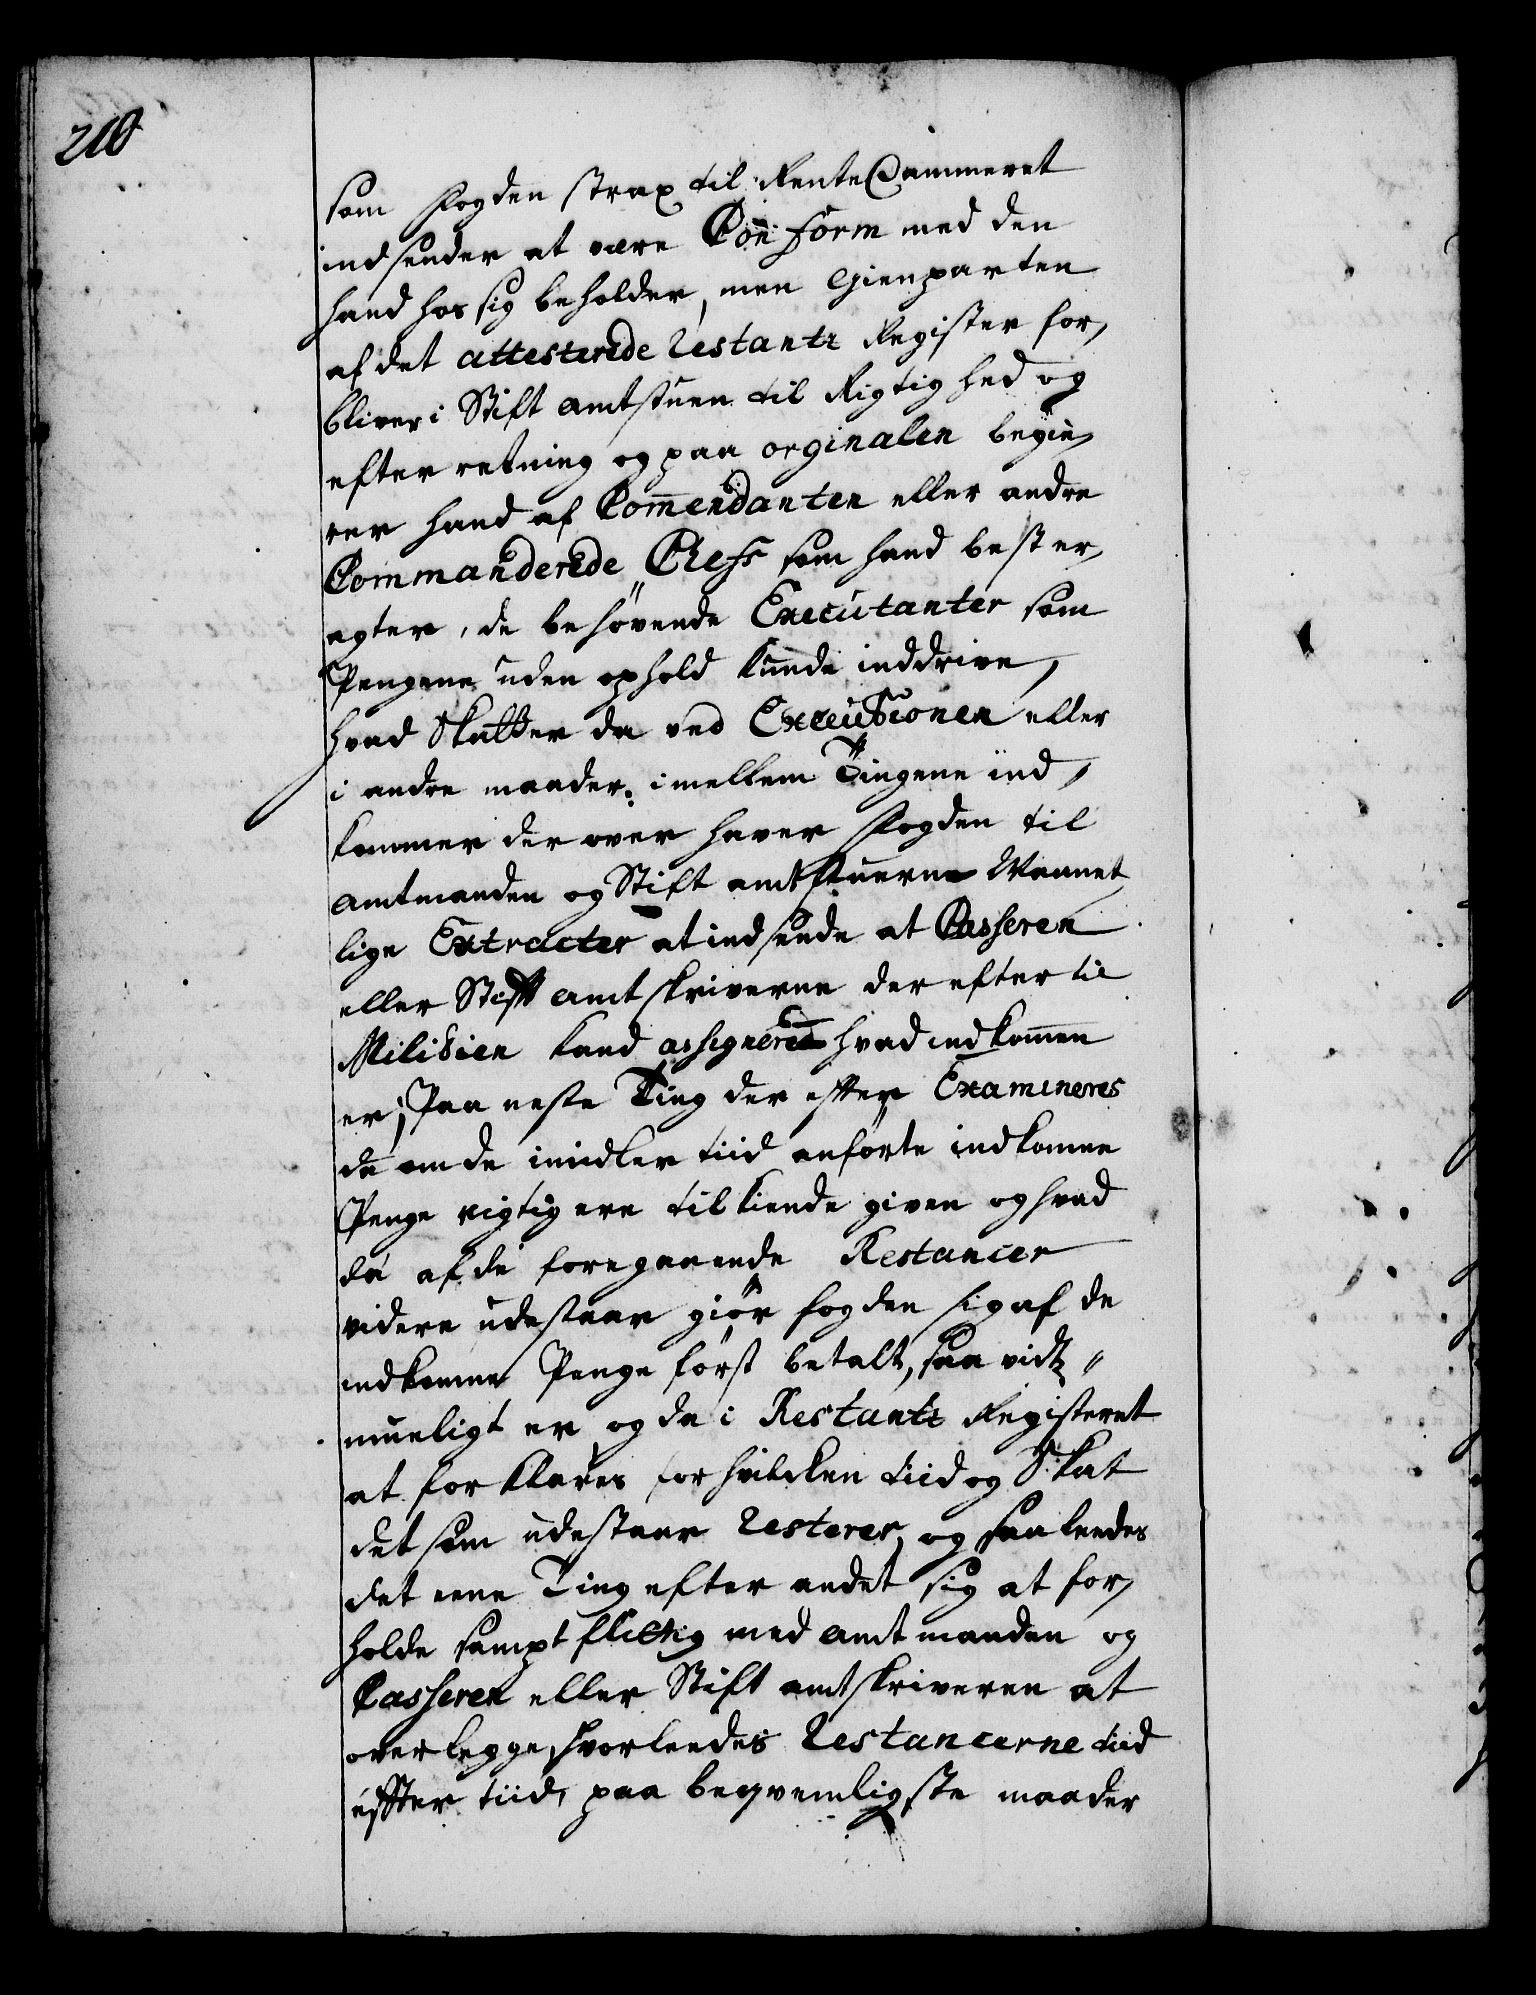 210
som fogden strax til RenteCammeret
indsender at være Conform med den
hand hos sig beholder, men Gienparten
af det attesterede Restantz Register for,
bliver i Stift amtstuen til Rigtighed og
efterretning og paa orginalen begiæ,
rer hand af Comendanten eller andre
Commanderede Chefs som hand best er,
agter, de behøvende Executanter som
Pengene uden ophold kunde inddrive,
hvad Skatter da ved Executionen eller
i andre maader imellem Tingene ind,
kommer der over haver fogden til
amtmanden og Stift amtstuerne Maanet
lige Extracter at indsende at Casseren
eller Stift amtskriverne der efter til
Militien kand assignere hvad indkomen
er; Paa neste Ting der effter Examineres
da om de imidler tiid anførte indkomne
Penge rigtig ere tilkiende given og hvad
da af de foregaaende Restancer
videre udestaar giør fogden sig af de
indkomne Penge først betalt, saa vidt
mueligt er, og da i Restantz Registeret
at forklares for hvilcken tiid og Skat
det som udestaar Resterer, og saaleedes
det eene Ting efter andet sig at for,
holde sampt flittig med amtmanden og
Casseren eller Stift amtskriveren at
overlegge, hvorleedes Restancerne tiid
effter tiid, paa beqvemligste maader